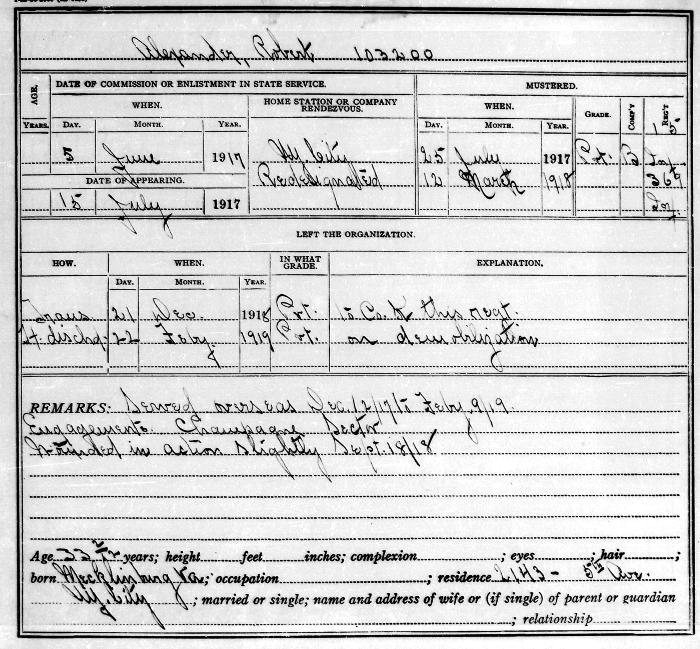 Alexander, Robert 103200
AGE.
DATE OF COMMISSION OR ENLISTMENT IN STATE SERVICE.
MUSTERED.
WHEN.
HOME STATION OR COMPANY RENDEZVOUS.
WHEN.
GRADE.
COMP'Y
REG'T
YEARS.
DAY.
MONTH.
YEAR.
DAY.
MONTH.
YEAR.
15.
5 June 1917 Ny. City 25 July 1917 Pvt. B Inf
DATE OF APPEARING.
Redesignated 12 March 1918 369
15 July 1917
LEFT THE ORGANIZATION.
HOW.
WHEN.
IN WHAT GRADE.
EXPLANATION.
DAY.
MONTH.
YEAR.
Trans 21 Dec. 1918 Pvt. to Co. K this regt.
H. dischd 22 Feby. 1919 Pvt. on demobilization
REMARKS: Served overseas Dec. 12/17 to Feby. 9/19.
Engagements Champagne Sector
Wounded in action slightly Sept. 18/18
Age years; height feet inches; complexion ; eyes ; hair ;
born Mecklinburg Va.; occupation ; residence 2143 - 5th Ave.
Ny. City ; married or single; name and address of wife or (if single) of parent or guardian
; relationship